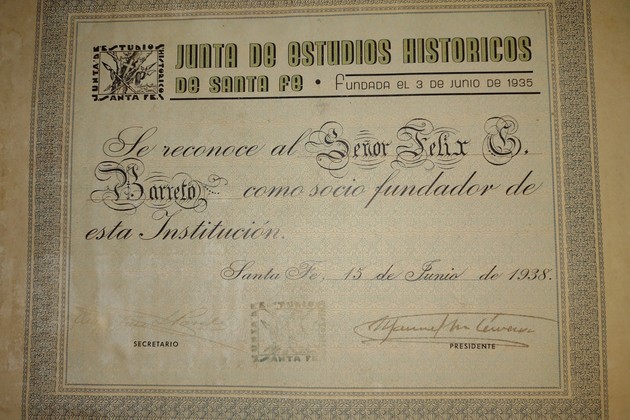 JUNTA DE ESTUDIOS HISTORICOS SANTA FE
JUNTA DE ESTUDIOS HISTORICOS
DE SANTA FE • FUNDADA EL 3 DE JUNIO DE 1935
Se reconoce al Señor Felix G.
Barreto como socio fundador de
esta Institución.
Santa Fe, 15 de Junio de 1938.
JUNTA DE ESTUDIOS HISTORICOS SANTA FE
SECRETARIO
PRESIDENTE